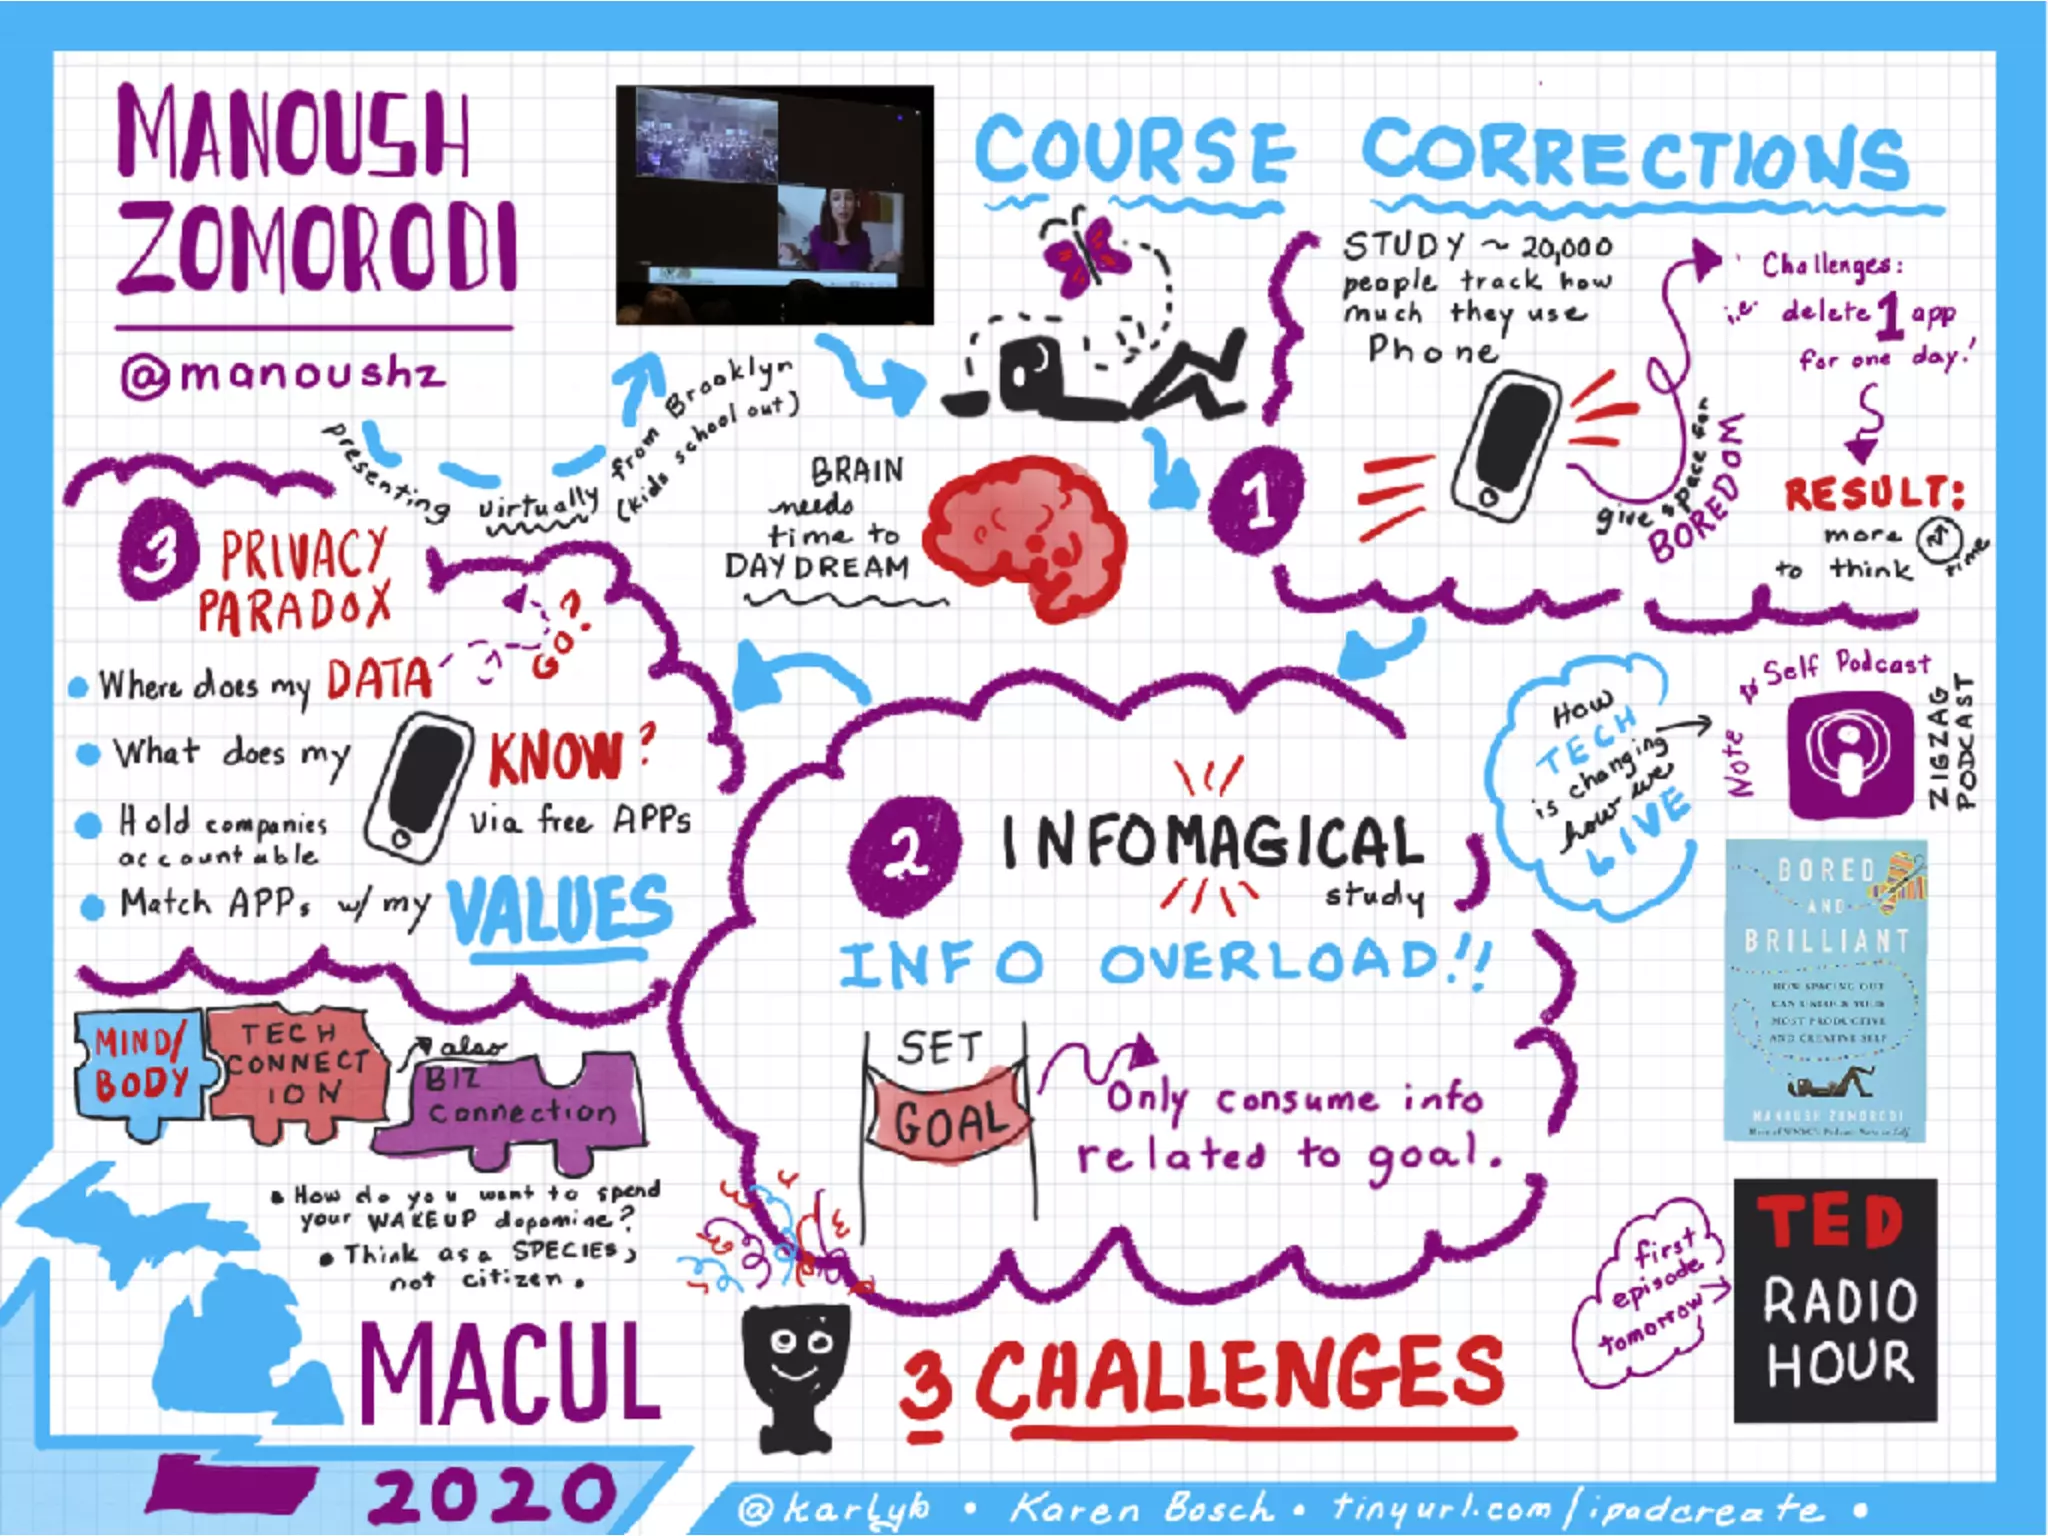 MANOUSH
ZOMORODI
@manoushz
presenting virtually from Brooklyn
(kids school out)
COURSE CORRECTIONS
BRAIN
needs
time to
DAYDREAM
1
STUDY ~ 20,000
people track how
much they use
Phone
give space for
BOREDOM
Challenges:
i.e. delete 1 app
for one day!
RESULT:
more
to think
time
3
PRIVACY
PARADOX
Where does my DATA
GO?
What does my
KNOW?
via free APPs
Hold companies
accountable
Match APPs w/ my VALUES
2
INFOMAGICAL
study
INFO OVERLOAD!!
SET
GOAL
Only consume info
related to goal.
How
TECH
is changing
how we
LIVE
Note to Self Podcast
ZIGZAG
PODCAST
BORED
AND
BRILLIANT
HOW SPACING OUT
CAN UNLOCK YOUR
MOST PRODUCTIVE
AND CREATIVE SELF
MANOUSH ZOMORODI
MIND/
BODY
TECH
CONNECT
ION
also
BIZ
connection
How do you want to spend
your WAKEUP dopamine?
Think as a SPECIES,
not citizen.
first
episode
tomorrow
TED
RADIO
HOUR
MACUL
2020
3 CHALLENGES
@karlyb • Karen Bosch • tinyurl.com/ipadcreate •